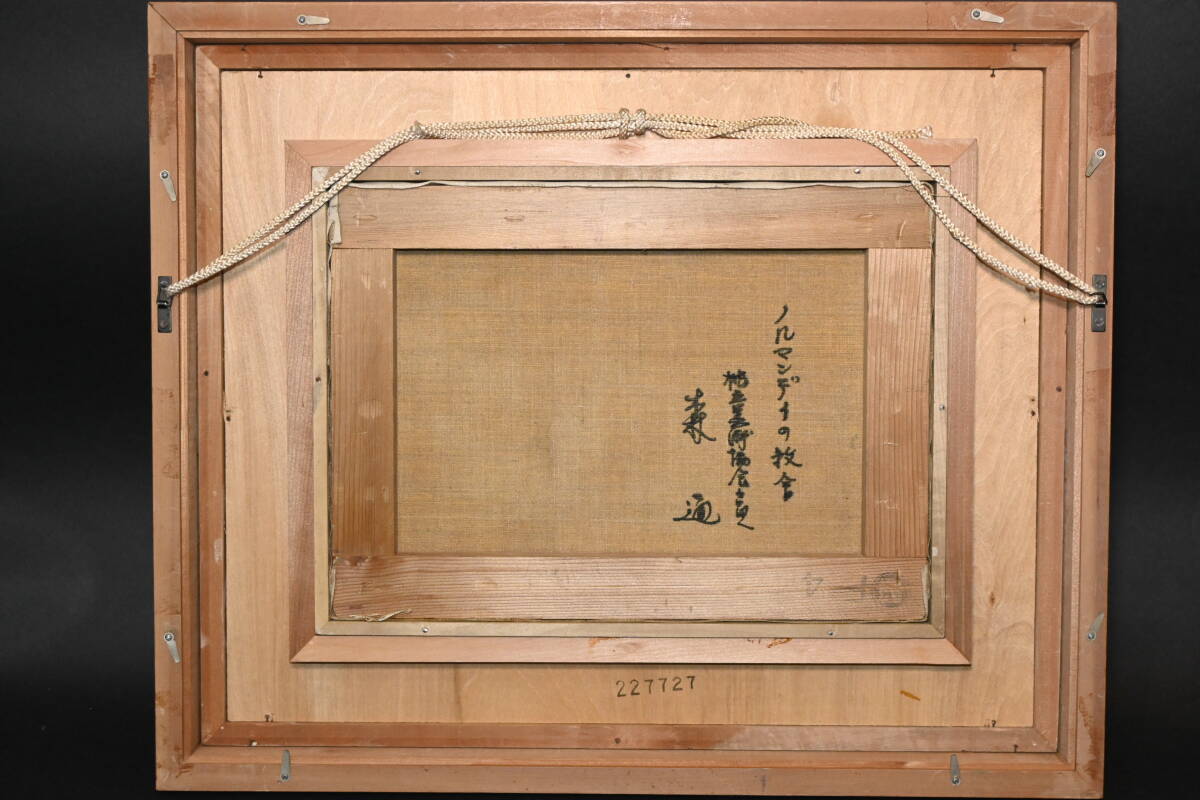 ノルマンディの教会
独立美術協会々員
森 通
227727